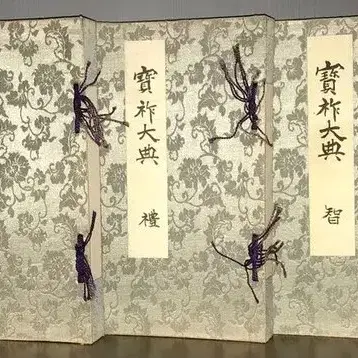 寶祚大典 禮
寶祚大典 智